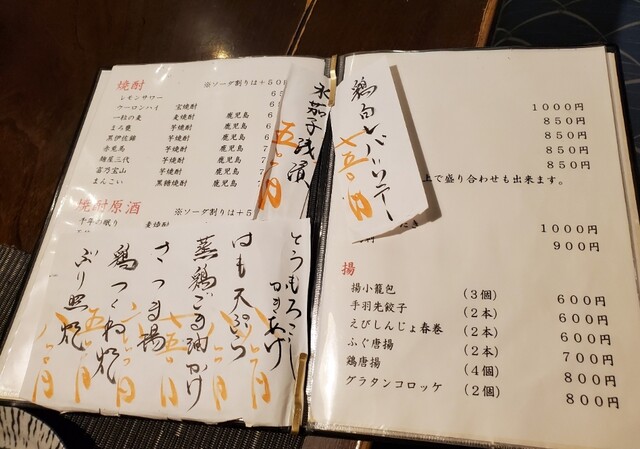 焼酎 ※ソーダ割りは+50円
レモンサワー
ウーロンハイ 宝焼酎
一粒の麦 麦焼酎 鹿児島
まろ鹿 芋焼酎 鹿児島
黒伊佐錦 芋焼酎 鹿児島
赤兎馬 芋焼酎 鹿児島
麹屋三代 芋焼酎 鹿児島
富乃宝山 芋焼酎 鹿児島
まんこい 黒糖焼酎 鹿児島
焼酎原酒 ※ソーダ割りは+5
千年の眠り 麦焼酎
水茄子浅漬
五〇〇円
とうもろこし
かきあげ
はも天ぷら
蒸鶏ごま油かけ
七五〇円
さつま揚
鶏つくね焼
ぶり照焼
鶏白レバーソテー
七五〇円
1000円
850円
850円
850円
850円
上で盛り合わせも出来ます。
1000円
900円
揚
揚小籠包 (3個) 600円
手羽先餃子 (2本) 600円
えびしんじょ春巻 (2本) 600円
ふぐ唐揚 (2本) 700円
鶏唐揚 (4個) 800円
グラタンコロッケ (2個) 800円